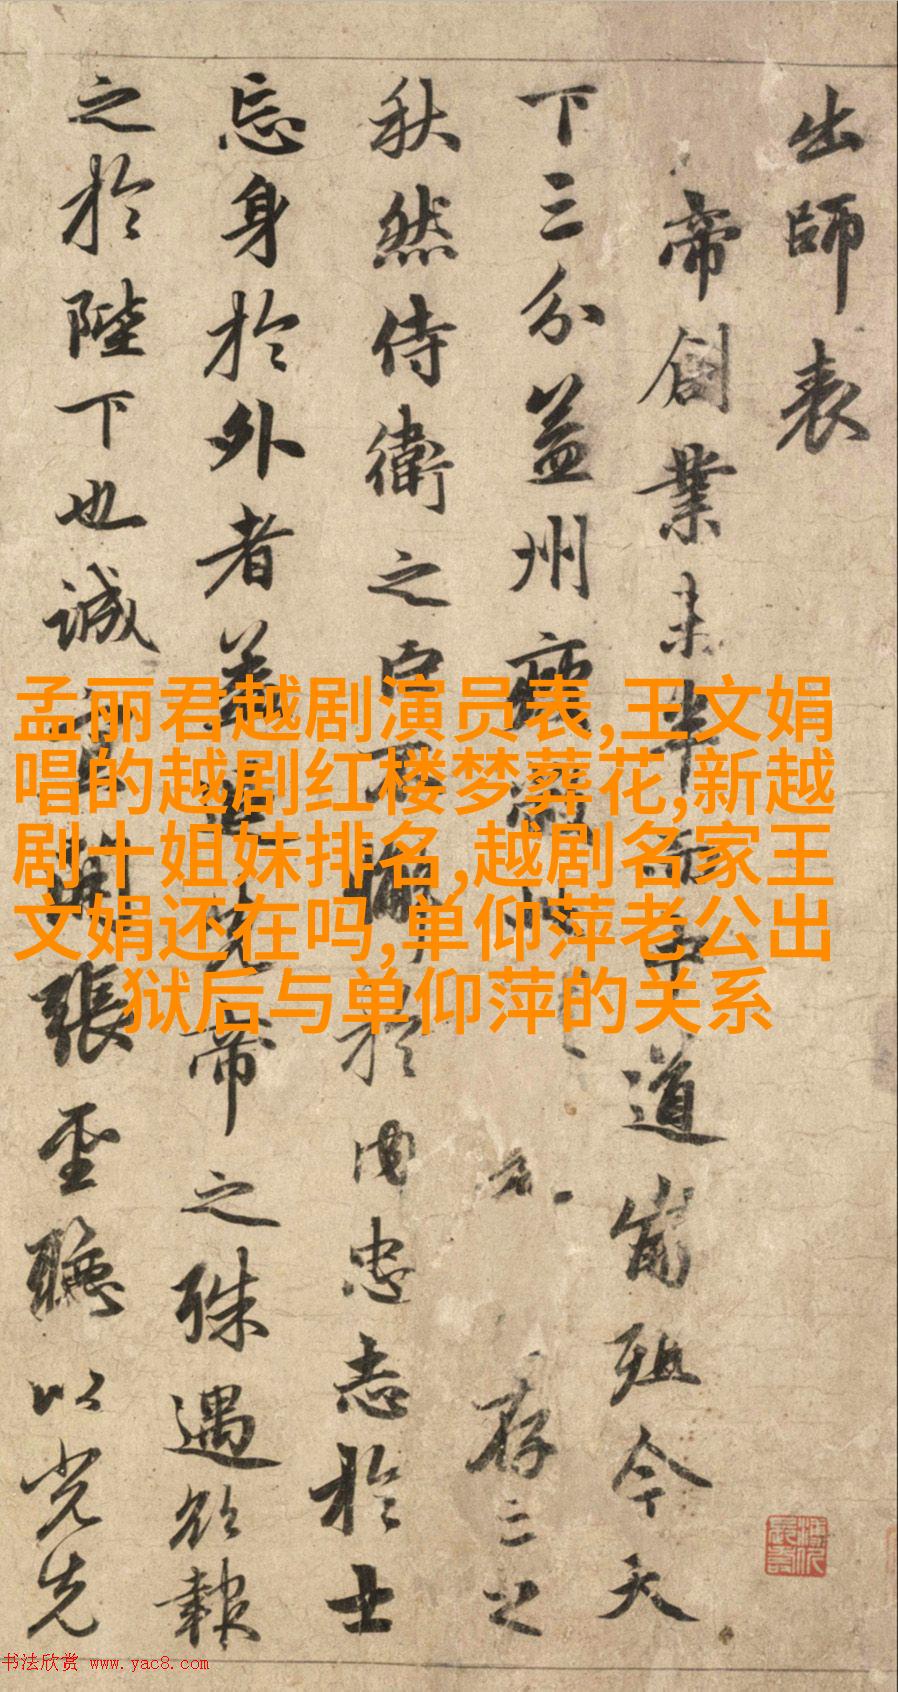 出師表
帝創業未半而中道崩殂今天
下三分益州疲弊此存亡之
秋然侍衛之臣不懈於内忠志於士
忘身於外者蓋追先帝之殊遇欲報
之於陛下也誠宜開張聖聽以光先
孟丽君越剧演员表,王文娟
唱的越剧红楼梦葬花,新越
剧十姐妹排名,越剧名家王
文娟还在吗,单仰萍老公出
狱后与单仰萍的关系
书法欣赏 www.yac8.com